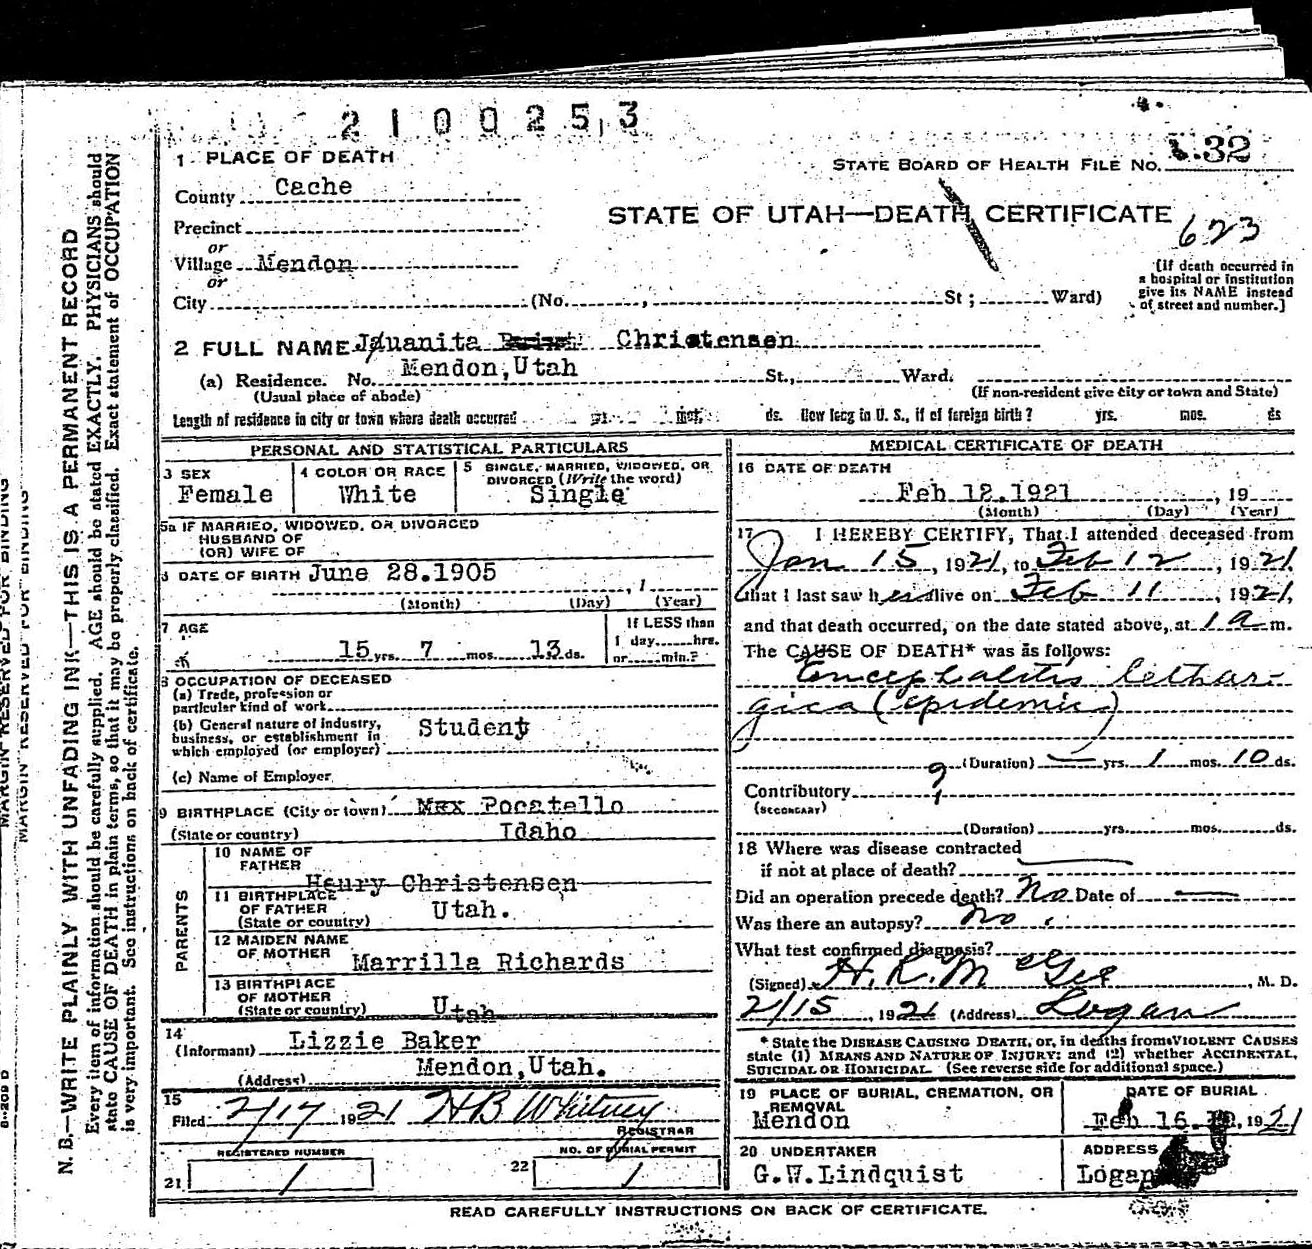 2100253
1 PLACE OF DEATH
STATE BOARD OF HEALTH FILE No. 32
County Cache
STATE OF UTAH—DEATH CERTIFICATE
623
Precinct
or
Village Mendon
or
City (No. , St ; Ward)
[If death occurred in
a hospital or institution
give its NAME instead
of street and number.]
2 FULL NAME Jauanita Christensen
(a) Residence. No. Mendon, Utah St., Ward.
(Usual place of abode) (If non-resident give city or town and State)
Length of residence in city or town where death occurred yrs. mos. ds. How long in U. S., if of foreign birth? yrs. mos. ds
PERSONAL AND STATISTICAL PARTICULARS
3 SEX
Female
4 COLOR OR RACE
White
5 SINGLE, MARRIED, WIDOWED, OR
DIVORCED (Write the word)
Single
5a IF MARRIED, WIDOWED, OR DIVORCED
HUSBAND OF
(OR) WIFE OF
6 DATE OF BIRTH June 28.1905
, 1
(Month) (Day) (Year)
7 AGE
15 yrs. 7 mos. 13 ds.
If LESS than
1 day hrs.
or min.?
8 OCCUPATION OF DECEASED
(a) Trade, profession or
particular kind of work
(b) General nature of industry,
business, or establishment in
which employed (or employer)
Student
(c) Name of Employer
9 BIRTHPLACE (City or town) Pocatello
(State or country) Idaho
PARENTS
10 NAME OF
FATHER
Henry Christensen
11 BIRTHPLACE
OF FATHER
(State or country)
Utah.
12 MAIDEN NAME
OF MOTHER
Marrilla Richards
13 BIRTHPLACE
OF MOTHER
(State or country)
Utah
14
(Informant) Lizzie Baker
(Address) Mendon, Utah.
15
Filed 2/17 1921 HB Whitney
REGISTRAR
REGISTERED NUMBER
21 1
NO. OF BURIAL PERMIT
22 1
MEDICAL CERTIFICATE OF DEATH
16 DATE OF DEATH
Feb 12.1921 , 19
(Month) (Day) (Year)
17 I HEREBY CERTIFY, That I attended deceased from
Jan 15, 1921, to Feb 12, 1921
that I last saw her alive on Feb 11, 1921,
and that death occurred, on the date stated above, at 1 a m.
The CAUSE OF DEATH* was as follows:
Encephalitis lethar-
gica (epidemic)
(Duration) — yrs. 1 mos. 10 ds.
Contributory
(SECONDARY)
(Duration) yrs. mos. ds.
18 Where was disease contracted
if not at place of death?
Did an operation precede death? No Date of —
Was there an autopsy? No.
What test confirmed diagnosis?
(Signed) H. R. McGee, M. D.
2/15, 1921 (Address) Logan
* State the DISEASE CAUSING DEATH, or, in deaths from VIOLENT CAUSES
state (1) MEANS AND NATURE OF INJURY: and (2) whether ACCIDENTAL,
SUICIDAL OR HOMICIDAL. (See reverse side for additional space.)
19 PLACE OF BURIAL, CREMATION, OR
REMOVAL
Mendon
DATE OF BURIAL
Feb 16. , 1921
20 UNDERTAKER
G.W.Lindquist
ADDRESS
Logan
READ CAREFULLY INSTRUCTIONS ON BACK OF CERTIFICATE.
N. B.—WRITE PLAINLY WITH UNFADING INK—THIS IS A PERMANENT RECORD
Every item of information should be carefully supplied. AGE should be stated EXACTLY. PHYSICIANS should
state CAUSE OF DEATH in plain terms, so that it may be properly classified. Exact statement of OCCUPATION
is very important. See instructions on back of certificate.
MARGIN RESERVED FOR BINDING
MARGIN RESERVED FOR BINDING